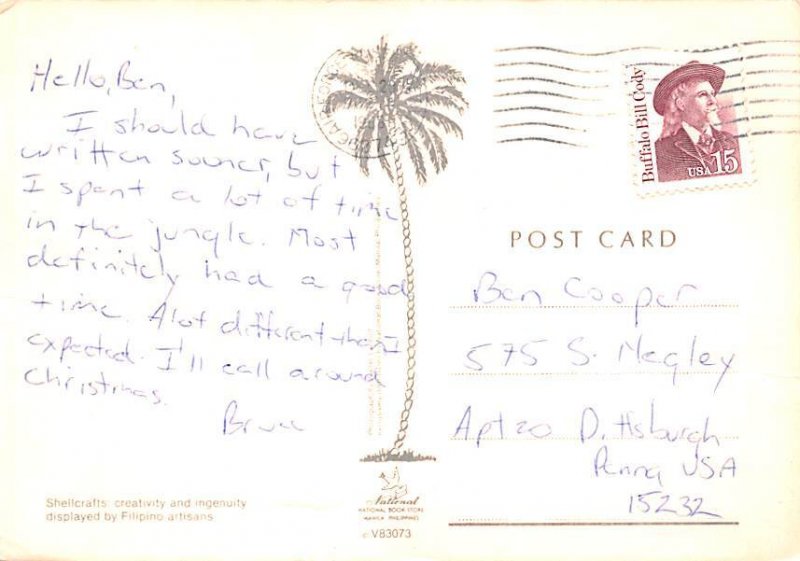 Hello, Ben,
I should have
written sooner, but
I spent a lot of time
in the jungle. Most
definitely had a good
time. Alot different than I
expected. I'll call around
Christmas.
Bruce
Shellcrafts: creativity and ingenuity
displayed by Filipino artisans
National
NATIONAL BOOK STORE
MANILA PHILIPPINES
c V83073
Buffalo Bill Cody
USA 15
POST CARD
Ben Cooper
575 S. Negley
Apt 20 Pittsburgh
Penna USA
15232